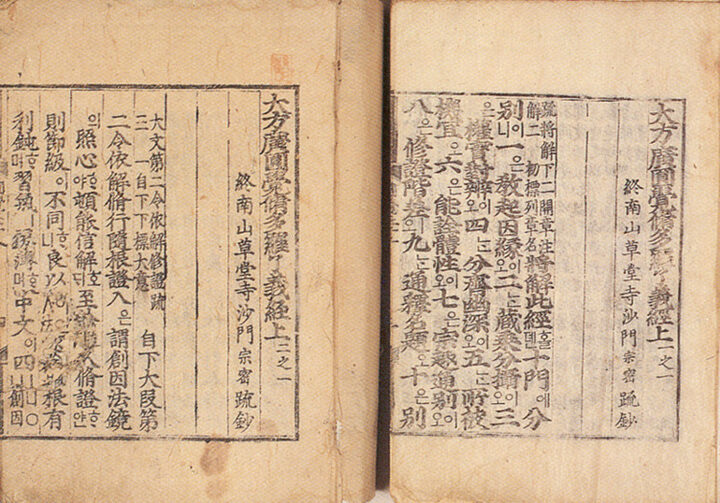 大方廣圓覺脩多羅了義經上 一之一
終南山草堂寺沙門宗密疏鈔
疏將解下二開章注
解二 初標列章名
將解此經홀뎬十門에分
別이니一은敎起因緣이오二는藏乘分攝이오三
은權實對辨이오四는分齊幽深이오五는所被
機宜오六은能詮體性이오七은宗趣通別이오
八은修證階差오九는通釋名題오十은別
大方廣圓覺脩多羅了義經上 三之一
終南山草堂寺沙門宗密疏鈔
大文第二令依解修證疏
三 一自下下標大意
自下大段第
二令依解脩行隨根證入은謂創因法鏡
의照心頓能信解至脩證얀
則節級이不同良以根有
利鈍習執이薄中文이四創因